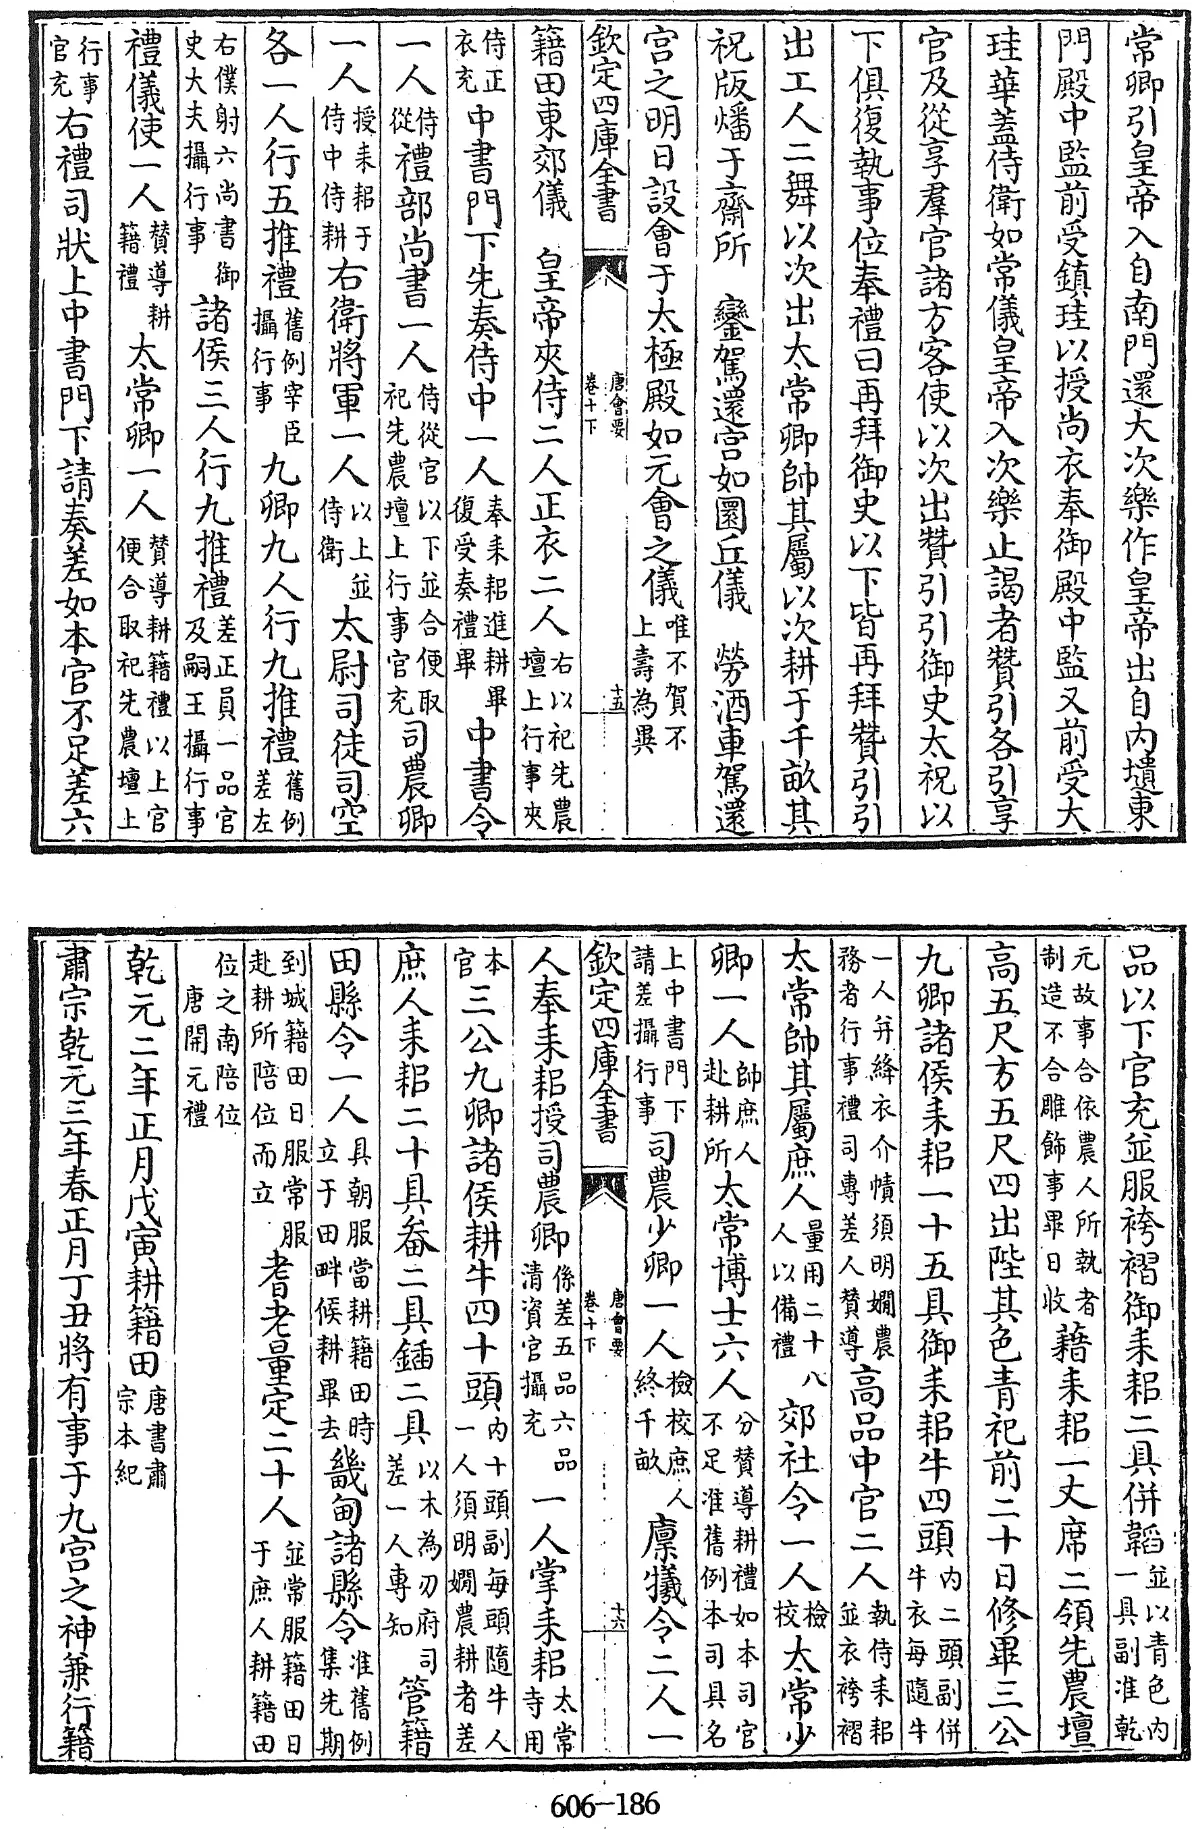 常卿引皇帝入自南門還大次樂作皇帝出自内壝東
門殿中監前受鎮珪以授尚衣奉御殿中監又前受大
珪華蓋侍衛如常儀皇帝入次樂止謁者贊引各引享
官及從享羣官諸方客使以次出贊引引御史太祝以
下俱復執事位奉禮曰再拜御史以下皆再拜贊引引
出工人二舞以次出太常卿帥其屬以次耕于千畝其
祝版燔于齋所 鑾駕還宫如圜丘儀 勞酒車駕還
宫之明日設會于太極殿如元會之儀唯不賀不上壽為異
欽定四庫全書 唐會要卷十下 十五
籍田東郊儀 皇帝夾侍二人正衣二人右以祀先農壇上行事夾
侍正衣充中書門下先奏侍中一人奉耒耜進耕畢復受奏禮畢中書令
一人侍從禮部尚書一人侍從官以下並合便取祀先農壇上行事官充司農卿
一人授耒耜于侍中侍耕右衛將軍一人以上並侍衛太尉司徒司空
各一人行五推禮舊例宰臣攝行事九卿九人行九推禮舊例差左
右僕射六尚書御史大夫攝行事諸侯三人行九推禮差正員一品官及嗣王攝行事
禮儀使一人贊導耕籍禮太常卿一人贊導耕籍禮以上官便合取祀先農壇上
行事官充右禮司狀上中書門下請奏差如本官不足差六
品以下官充並服袴褶御耒耜二具併韜並以青色内一具副准乾
元故事合依農人所執者制造不合雕飾事畢日收藉耒耜一丈席二領先農壇
高五尺方五尺四出陛其色青祀前二十日修畢三公
九卿諸侯耒耜一十五具御耒耜牛四頭内二頭副併牛衣每隨牛
一人并絳衣介幘須明嫺農務者行事禮司專差人贊導高品中官二人執侍耒耜並衣袴褶
太常帥其屬庶人量用二十八人以備禮郊社令一人檢校太常少
卿一人帥庶人赴耕所太常博士六人分贊導耕禮如本司官不足准舊例本司具名
上中書門下請差攝行事司農少卿一人檢校庶人終千畝廩犧令二人一
欽定四庫全書 唐會要卷十下 十六
人奉耒耜授司農卿係差五品六品清資官攝充一人掌耒耜太常寺用
本官三公九卿諸侯耕牛四十頭内十頭副每頭隨牛人一人須明嫺農耕者差
庶人耒耜二十具畚二具鍤二具以木為刃府司差一人專知管籍
田縣令一人具朝服當耕籍田時立于田畔候耕畢去畿甸諸縣令准舊例集先期
到城籍田日服常服赴耕所陪位而立耆老量定二十人並常服籍田日于庶人耕籍田
位之南陪位唐開元禮
乾元二年正月戊寅耕籍田唐書肅宗本紀
肅宗乾元三年春正月丁丑將有事于九宫之神兼行籍
606-186